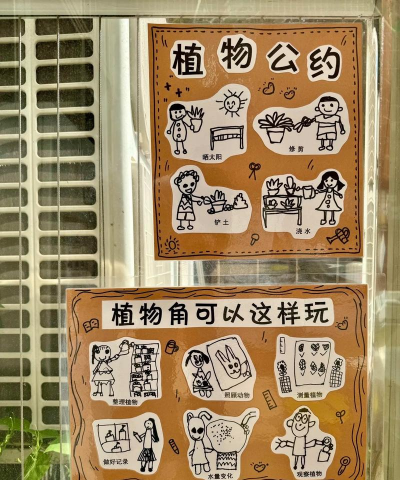 植物公约
晒太阳 修剪
铲土 浇水
植物角可以这样玩
整理植物 照顾动物 测量植物
做好记录 水量变化 观察植物